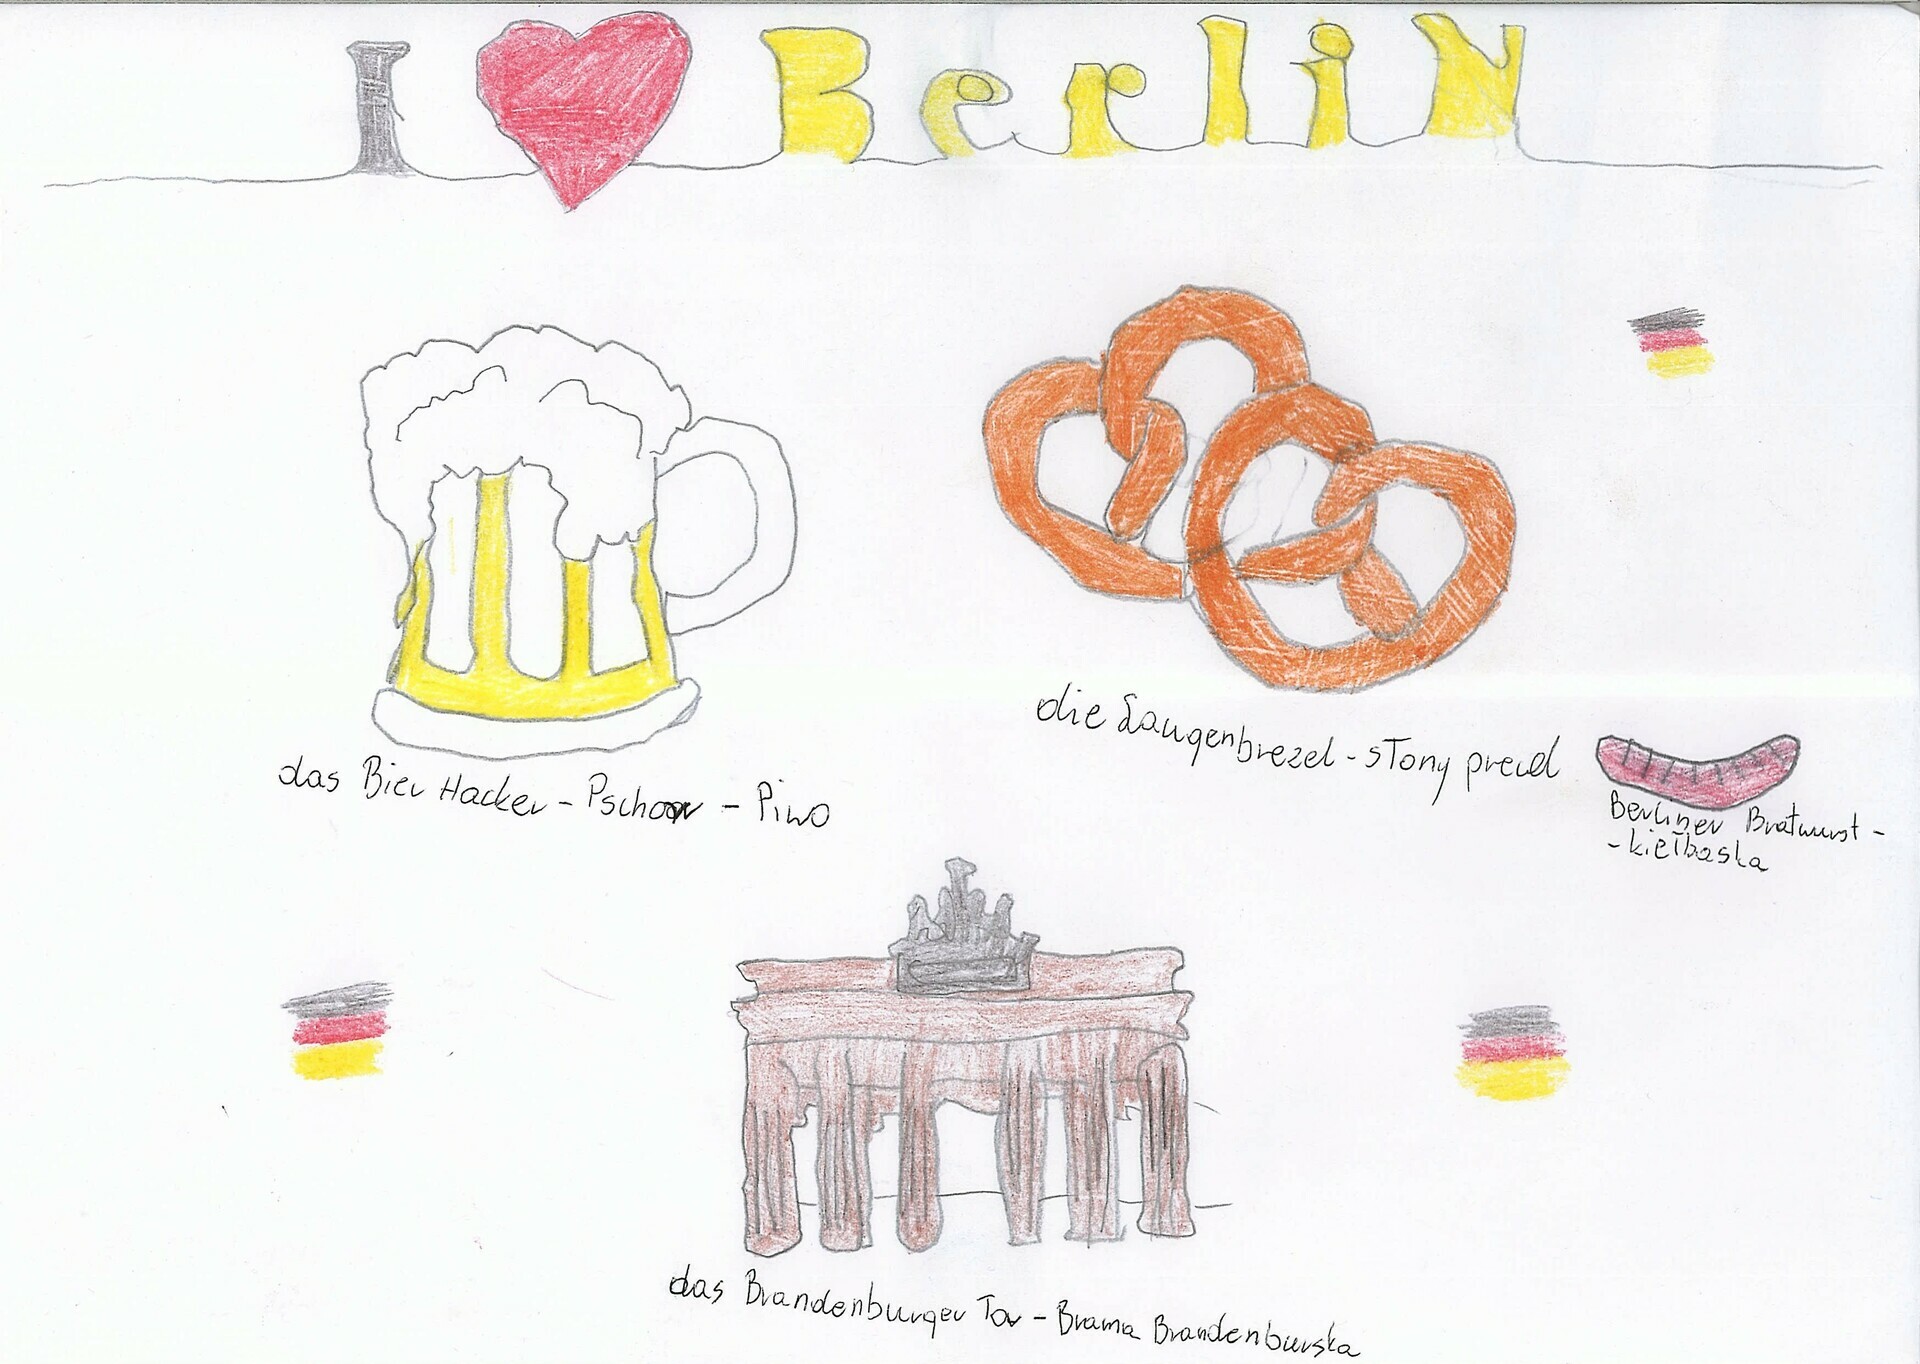 I Berlin
das Bier Hacker - Pschorr - Piwo
die Laugenbrezel - sTony precel
Berliner Bratwurst -
- kiełbaska
das Brandenburger Tor - Brama Brandenburska